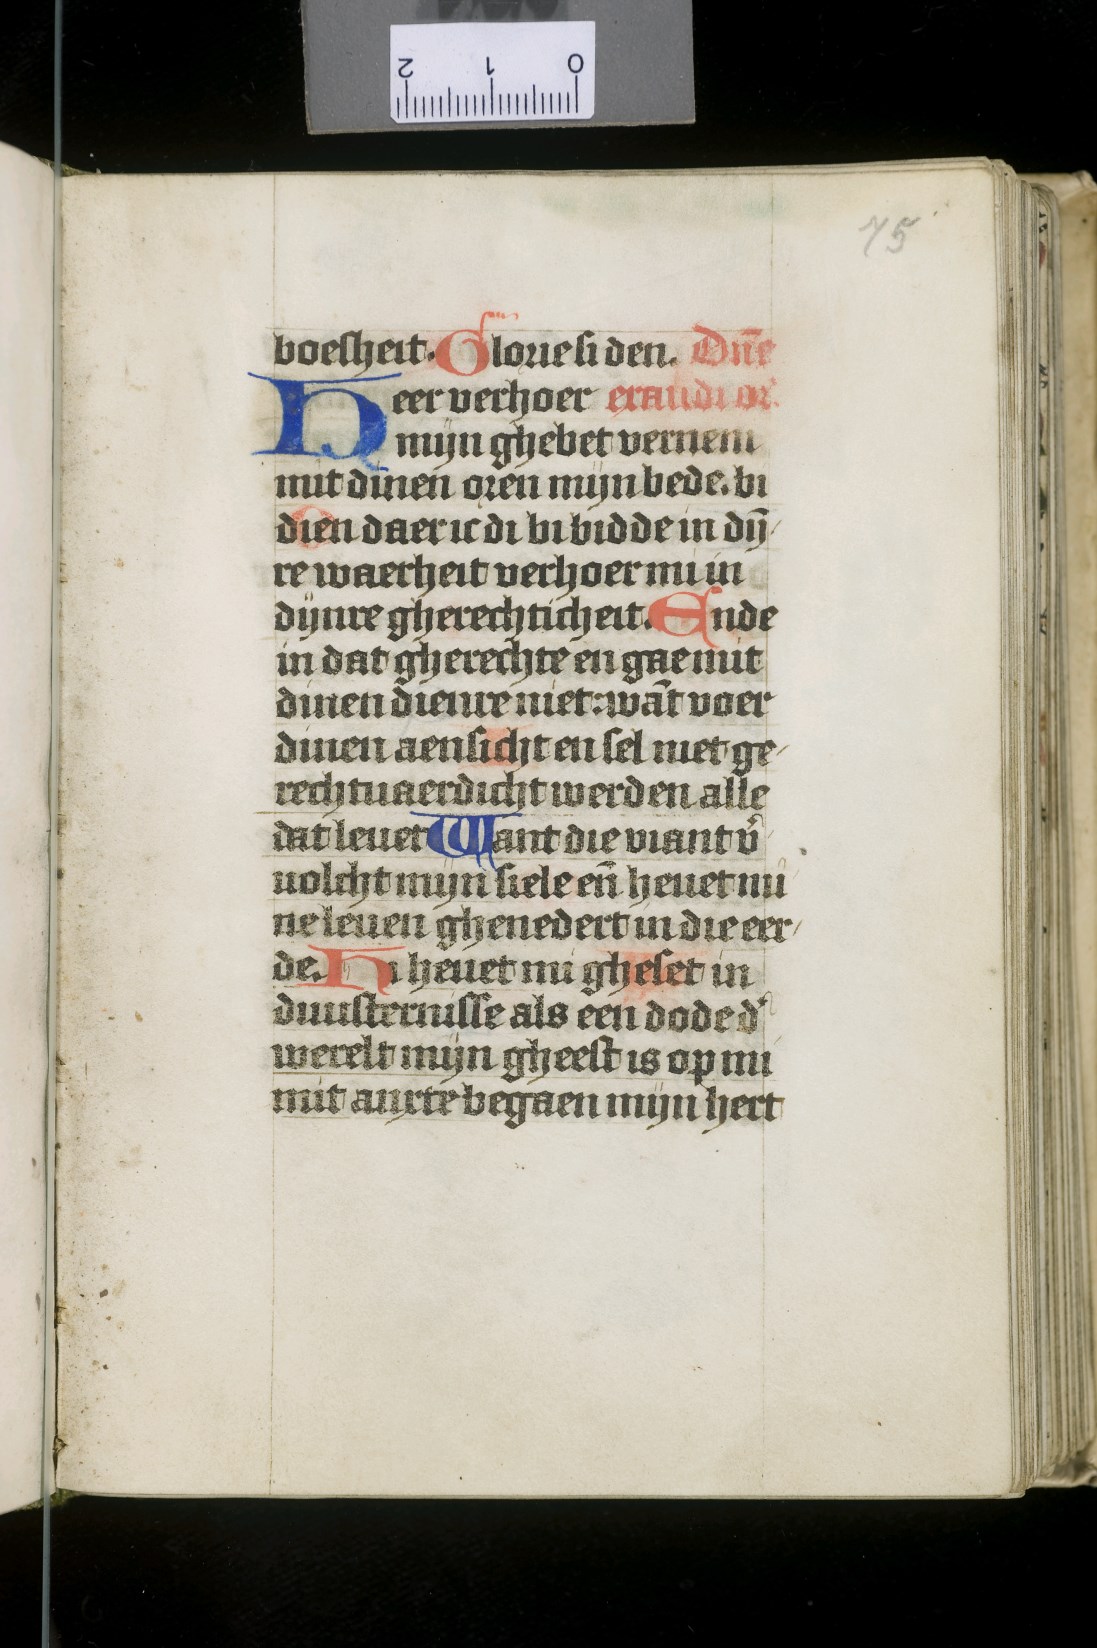 2 1 0
75
boesheit. Glorie si den. Dn̄e
Heer verhoer exaudi or̄.
mijn ghebet vernem
mit dinen oren mijn bede. bi
dien daer ic di bi bidde in dij̄
re waerheit verhoer mi in
dijnre gherechticheit. Ende
in dat gherechte en gae mit
dinen dienre niet: wāt voer
dinen aensicht en sel niet ge
rechtuaerdicht werden alle
dat leuet Want die viant v̾
uolcht mijn siele en̄ heuet mi
ne leuen ghenedert in die eer
de. Hi heuet mi gheset in
duusternisse als een dode d̾
werelt mijn gheest is op mi
mit anxte begaen mijn hert